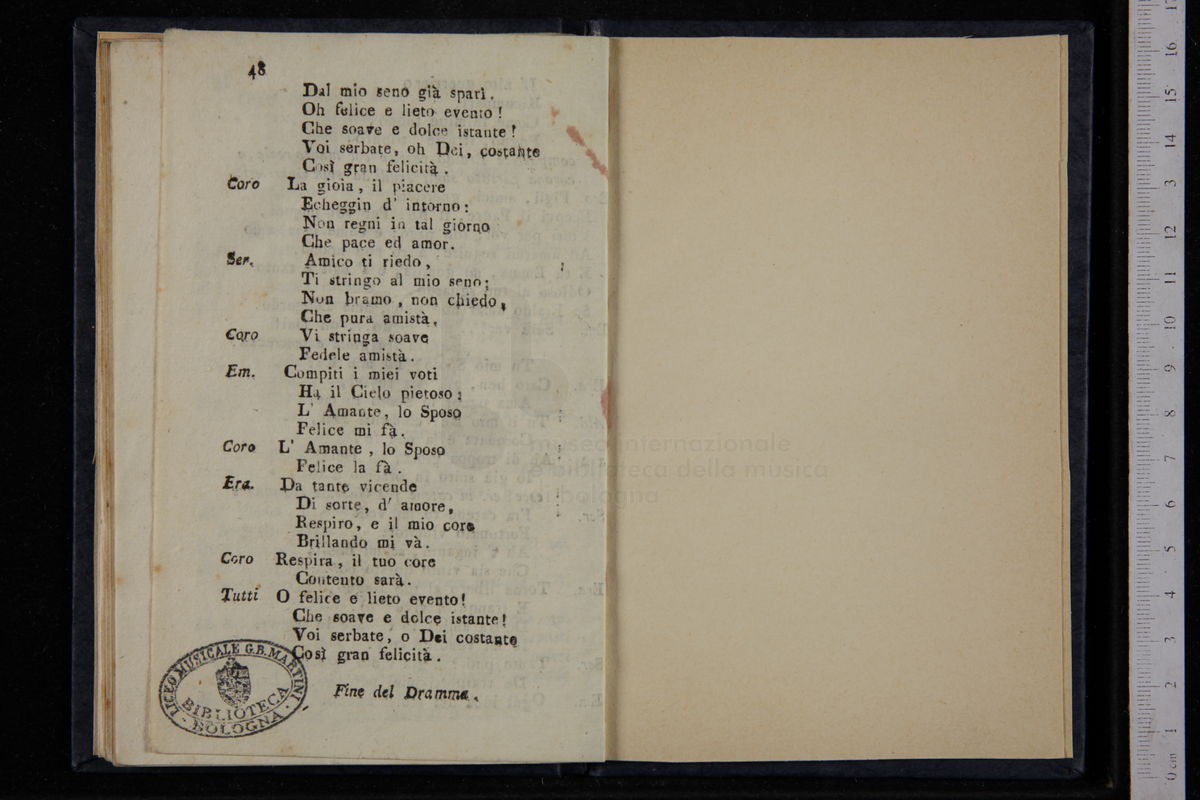 48
Dal mio seno già sparì.
Oh felice e lieto evento!
Che soave e dolce istante!
Voi serbate, oh Dei, costante
Così gran felicità.
Coro La gioia, il piacere
Echeggin d' intorno:
Non regni in tal giorno
Che pace ed amor.
Ser. Amico ti riedo,
Ti stringo al mio seno;
Non bramo, non chiedo,
Che pura amistà.
Coro Vi stringa soave
Fedele amistà.
Em. Compiti i miei voti
Ha il Cielo pietoso;
L' Amante, lo Sposo
Felice mi fà.
Coro L' Amante, lo Sposo
Felice la fà.
Era. Da tante vicende
Di sorte, d' amore,
Respiro, e il mio core
Brillando mi và.
Coro Respira, il tuo core
Contento sarà.
Tutti O felice e lieto evento!
Che soave e dolce istante!
Voi serbate, o Dei costante
Così gran felicità.
Fine del Dramma.
LICEO MUSICALE G.B. MARTINI
BIBLIOTECA
- BOLOGNA -
museo internazionale
e biblioteca della musica
di bologna
0 cm 1 2 3 4 5 6 7 8 9 10 11 12 13 14 15 16 17